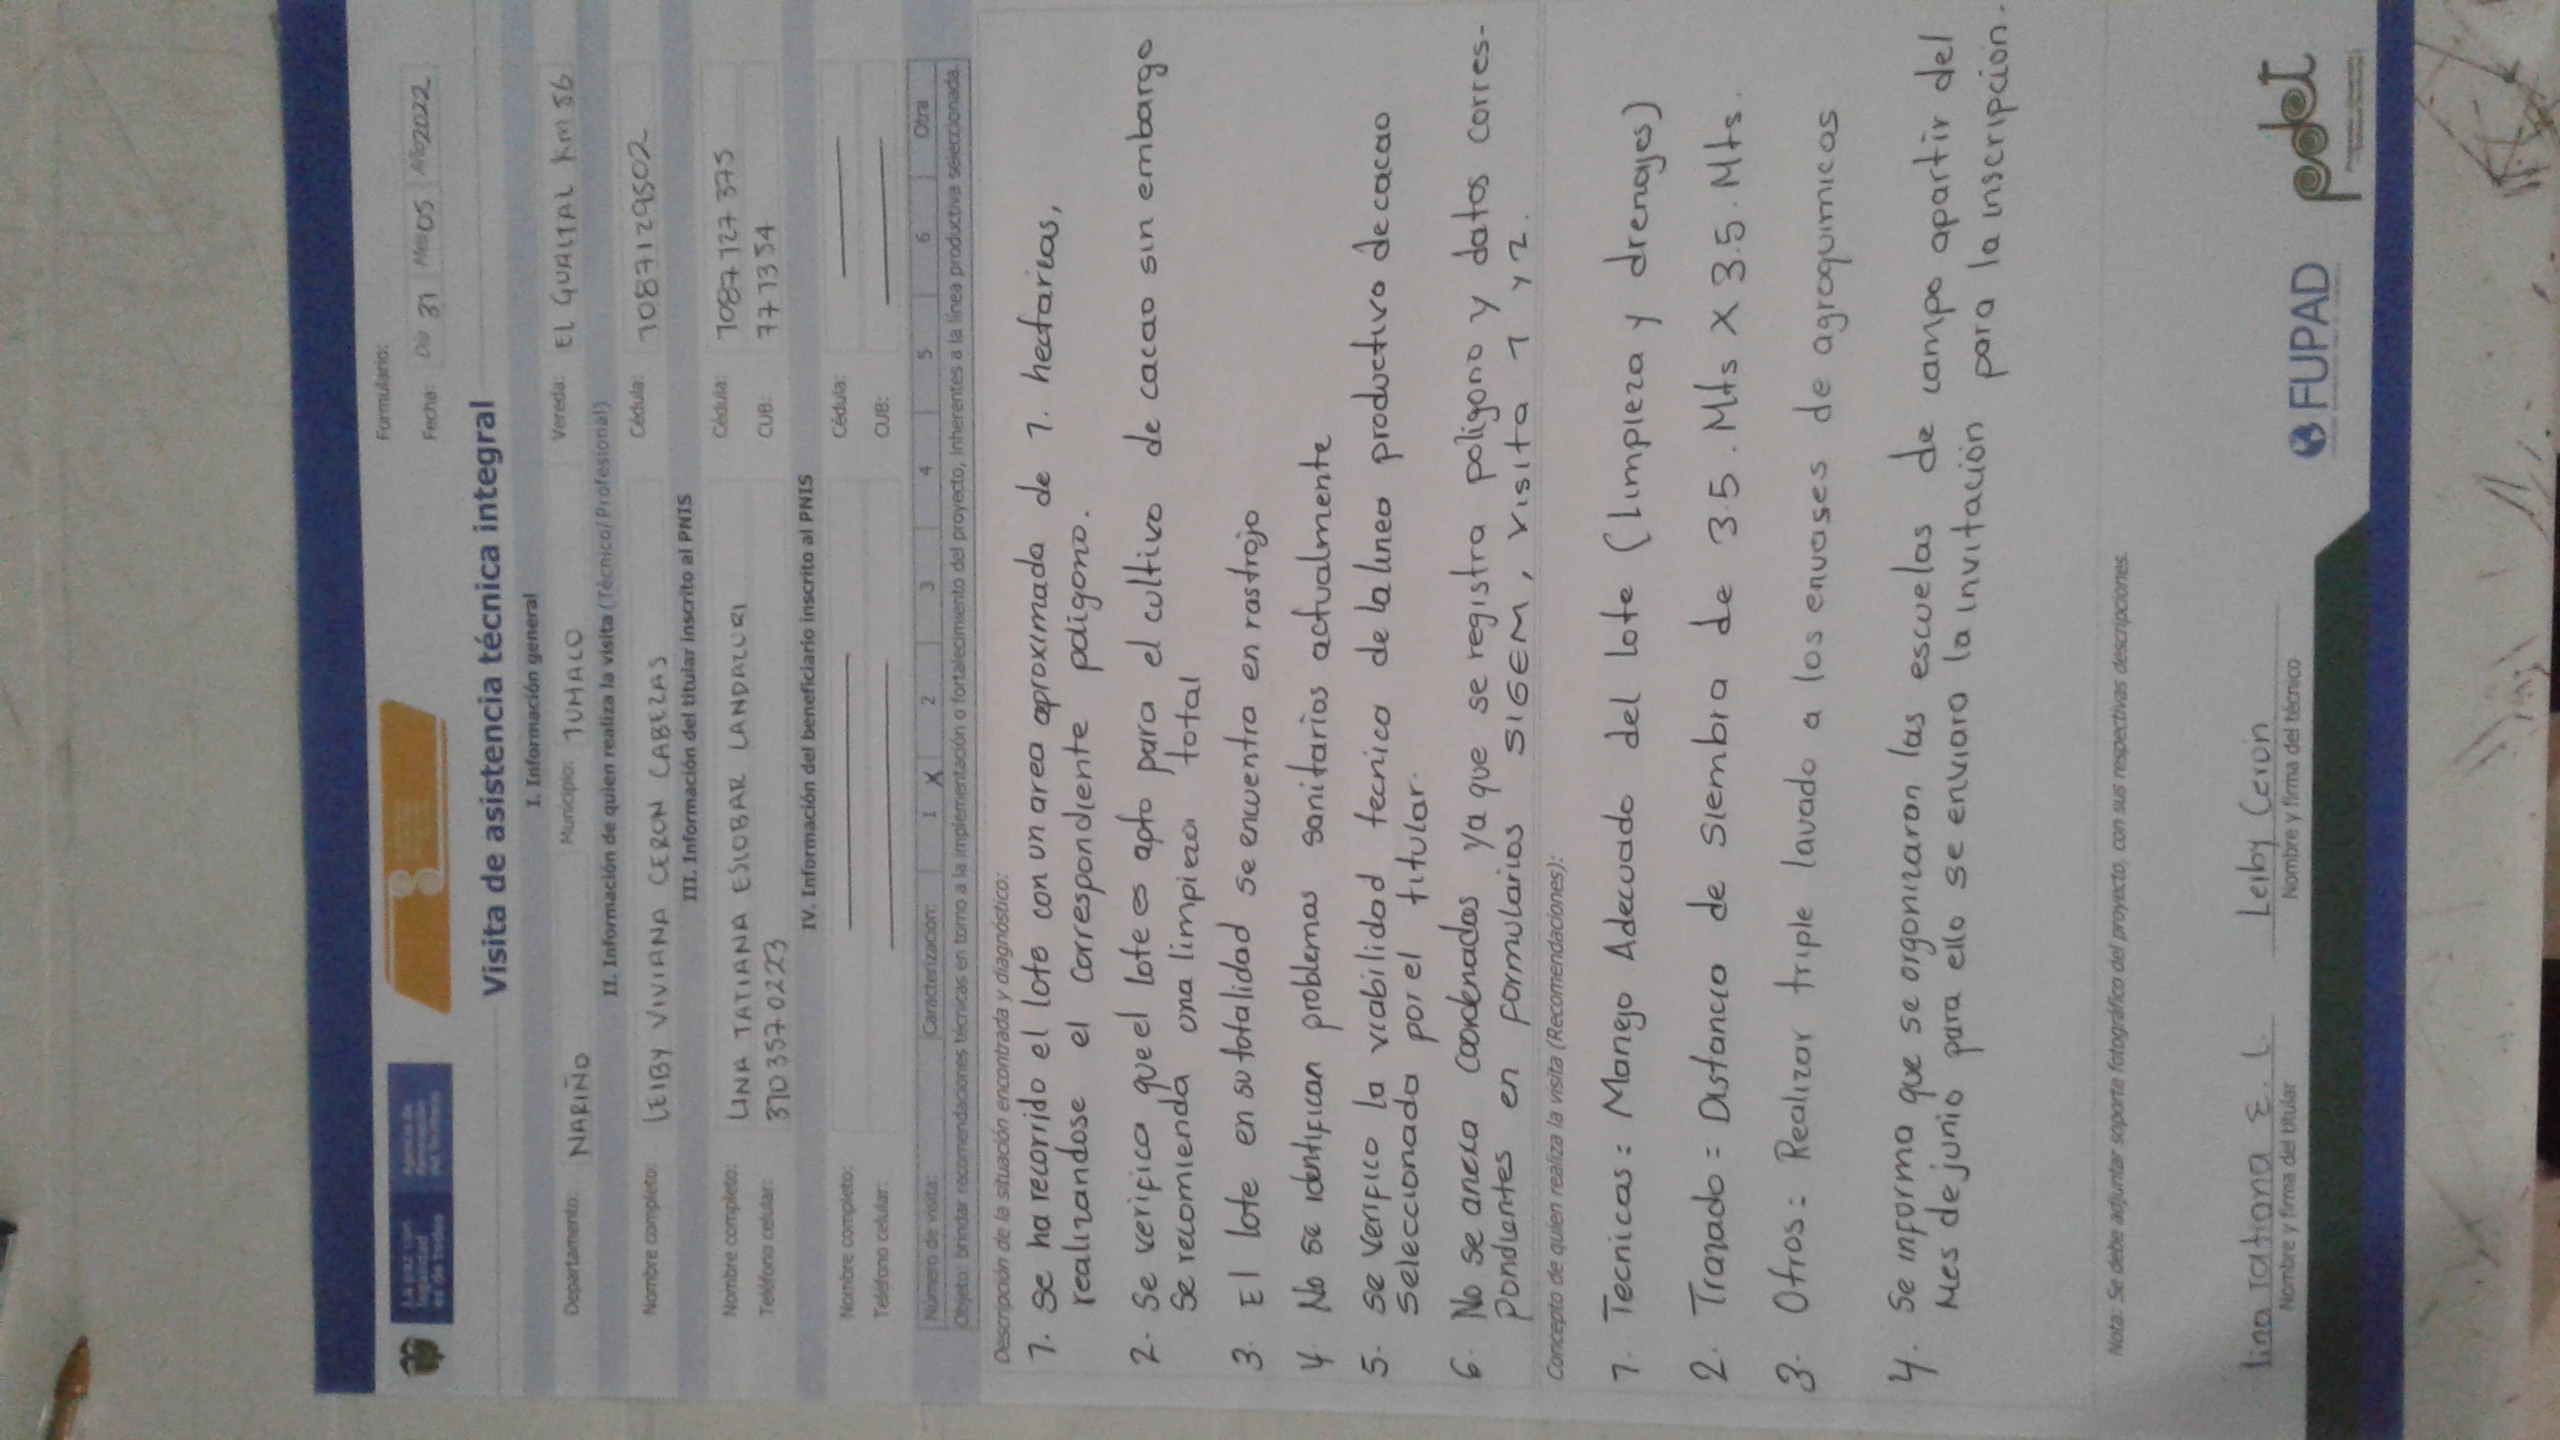 La paz con legalidad es de todos
Agencia de Renovación del Territorio
Formulario:
Fecha: Día 31 Mes 05 Año 2022
Visita de asistencia técnica integral
I. Información general
Departamento: NARIÑO Municipio: TUMACO Vereda: EL GUALTAL Km 56
II. Información de quien realiza la visita (Técnico/Profesional)
Nombre completo: LEIBY VIVIANA CERON CABEZAS Cédula: 1087129502
III. Información del titular inscrito al PNIS
Nombre completo: LINA TATIANA ESCOBAR LANDAZURI Cédula: 1087127375
Teléfono celular: 3103570223 CUB: 771354
IV. Información del beneficiario inscrito al PNIS
Nombre completo: Cédula:
Teléfono celular: CUB:
Número de visita: Caracterización: 1 X 2 3 4 5 6 Otra
Objeto: brindar recomendaciones técnicas en torno a la implementación o fortalecimiento del proyecto, inherentes a la línea productiva seleccionada.
Descripción de la situación encontrada y diagnóstico:
1. Se ha recorrido el lote con un area aproximada de 1. hectareas,
realizandose el correspondiente poligono.
2. Se verifico que el lote es apto para el cultivo de cacao sin embargo
se recomienda una limpieza total
3. El lote en su totalidad se encuentra en rastrojo
4 No se identifican problemas sanitarios actualmente
5. se verifico la viabilidad tecnica de la linea productiva de cacao
seleccionada por el titular.
6. No se anexa coordenadas ya que se registra poligono y datos corres-
pondientes en formularios SIGEM, visita 1 y 2.
Concepto de quien realiza la visita (Recomendaciones):
1. Tecnicas: Manejo Adecuado del lote (limpieza y drenajes)
2. Trazado = Distancia de siembra de 3.5. Mts X 3.5. Mts.
3. Otros: Realizar triple lavado a los envases de agroquimicos
4. Se informa que se organizaran las escuelas de campo apartir del
Mes de junio para ello se enviara la invitación para la inscripción.
Nota: Se debe adjuntar soporte fotográfico del proyecto, con sus respectivas descripciones.
Lina Tatiana E. L Leiby Ceron
Nombre y firma del titular Nombre y firma del técnico
FUPAD
pdet